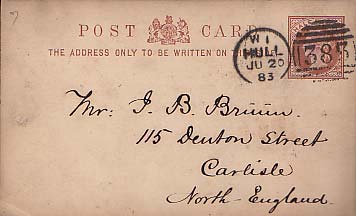 POST CARD
THE ADDRESS ONLY TO BE WRITTEN ON
W 1
HULL
JU 20
83
383
Mr. J. B.
115 Denton Street
Carlisle
North-England.